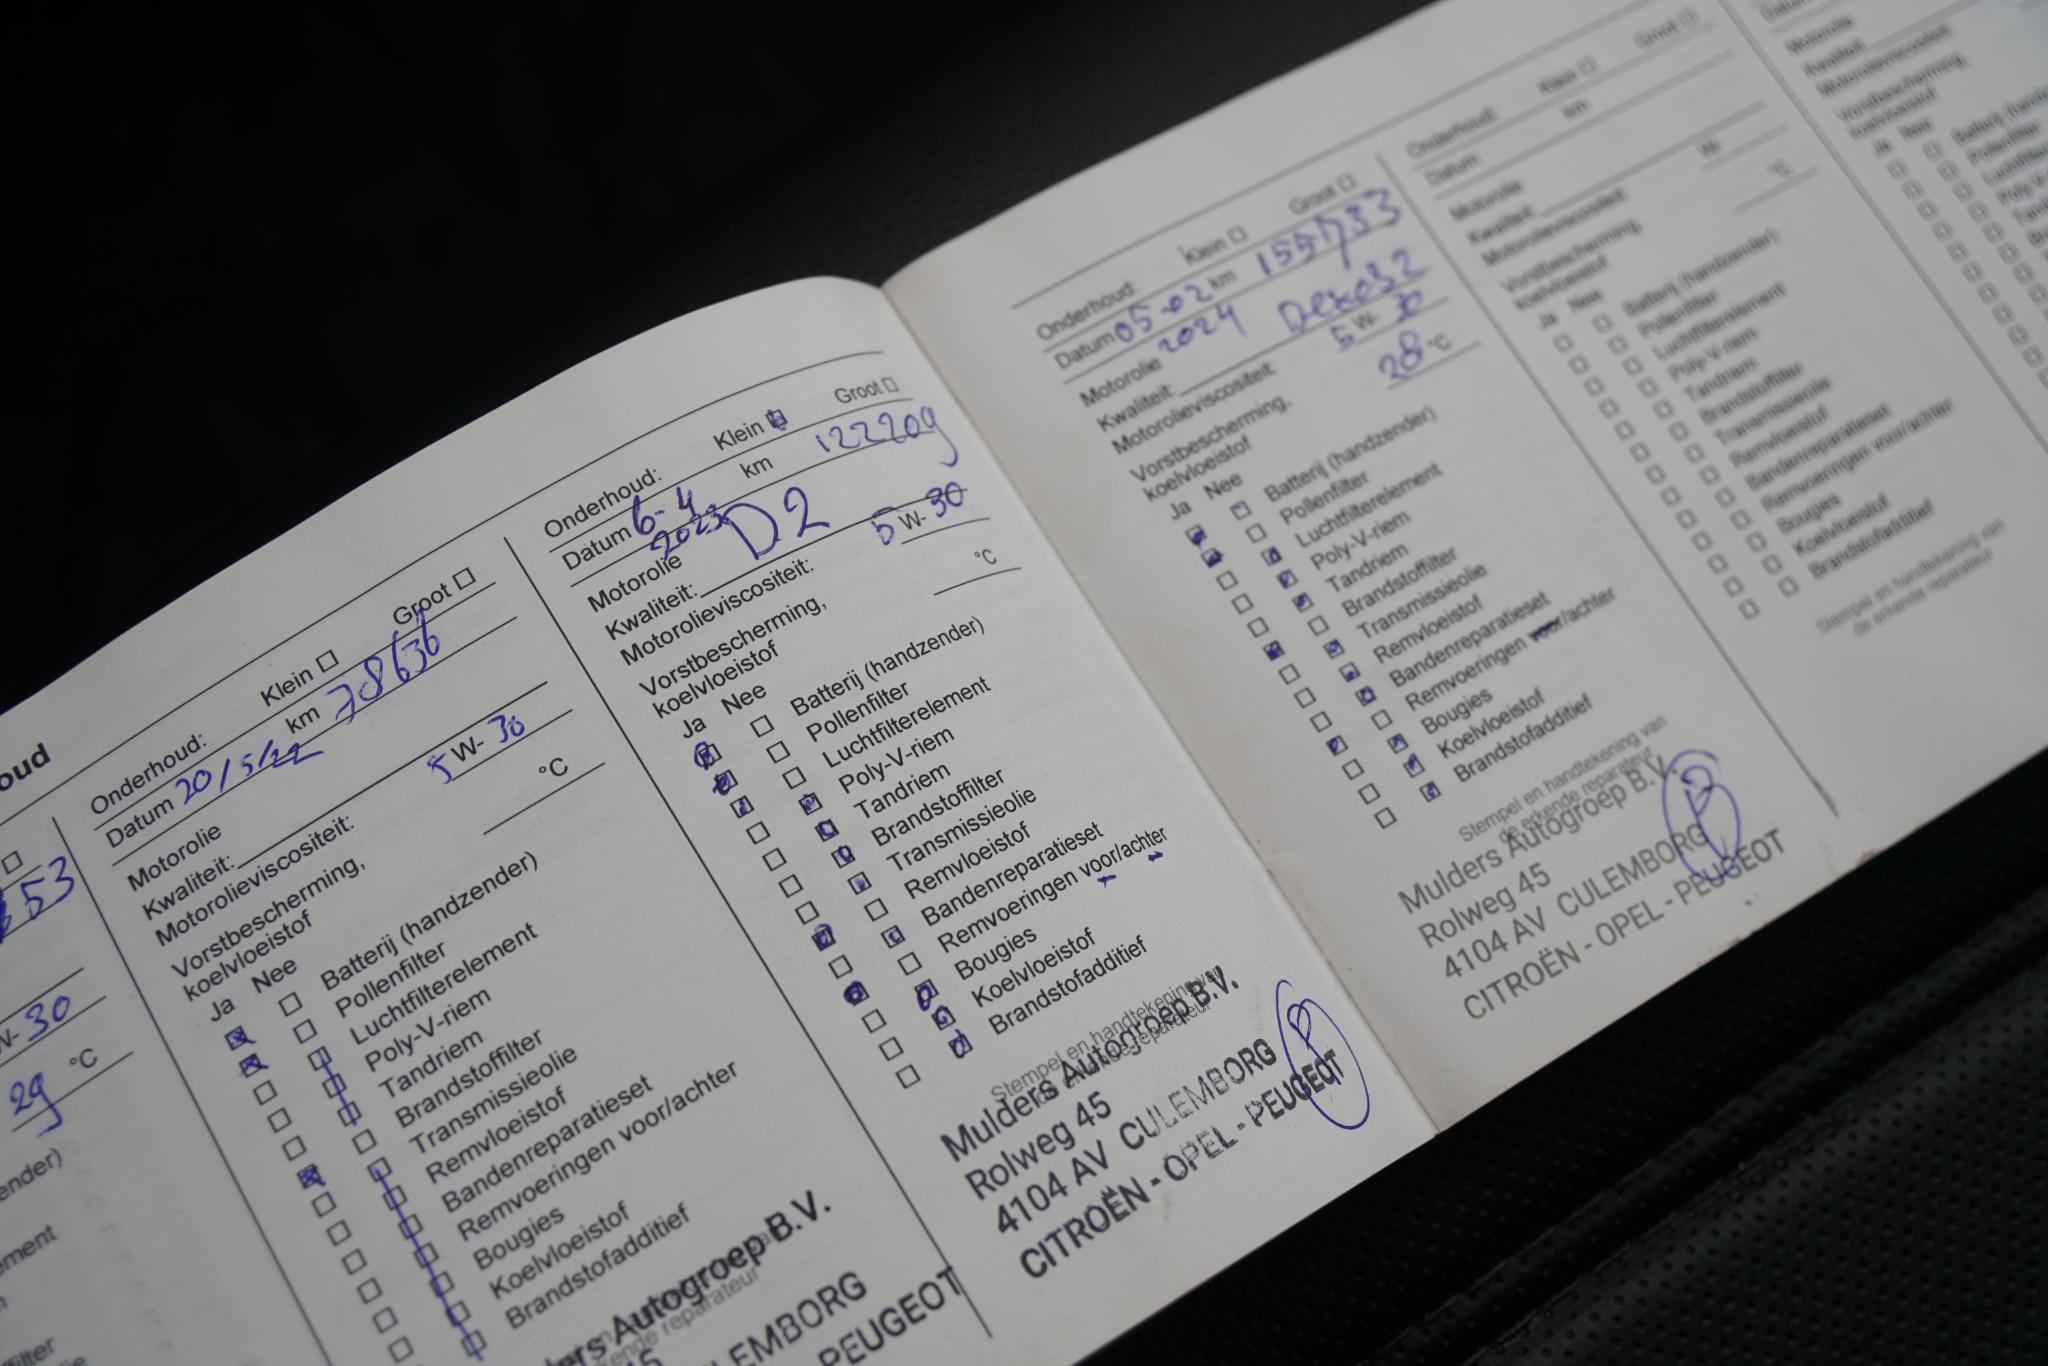 oud
53
W- 30
29 °C
ender)
ement
filter
Onderhoud: Klein Groot
Datum 20/5/22 km 78636
Motorolie
Kwaliteit:
Motorolieviscositeit: 5 W- 30
Vorstbescherming,
koelvloeistof °C
Ja Nee
Batterij (handzender)
Pollenfilter
Luchtfilterelement
Poly-V-riem
Tandriem
Brandstoffilter
Transmissieolie
Remvloeistof
Bandenreparatieset
Remvoeringen voor/achter
Bougies
Koelvloeistof
Brandstofadditief
ders Autogroep B.V.
kende reparateur
ULEMBORG
PEUGEOT
Onderhoud: Klein Groot
Datum 6-4 km 122209
2023
Motorolie D2
Kwaliteit:
Motorolieviscositeit: 5 W- 30
Vorstbescherming,
koelvloeistof °C
Ja Nee
Batterij (handzender)
Pollenfilter
Luchtfilterelement
Poly-V-riem
Tandriem
Brandstoffilter
Transmissieolie
Remvloeistof
Bandenreparatieset
Remvoeringen voor/achter
Bougies
Koelvloeistof
Brandstofadditief
Stempel en handtekening van
de erkende reparateur
Mulders Autogroep B.V.
Rolweg 45
4104 AV CULEMBORG
CITROËN - OPEL - PEUGEOT
Onderhoud: Klein Groot
Datum 05-02 km 155733
2024
Motorolie
Kwaliteit:
Motorolieviscositeit: 5 W- 30
Vorstbescherming,
koelvloeistof 28 °C
Ja Nee
Batterij (handzender)
Pollenfilter
Luchtfilterelement
Poly-V-riem
Tandriem
Brandstoffilter
Transmissieolie
Remvloeistof
Bandenreparatieset
Remvoeringen voor/achter
Bougies
Koelvloeistof
Brandstofadditief
Stempel en handtekening van
de erkende reparateur
Mulders Autogroep B.V.
Rolweg 45
4104 AV CULEMBORG
CITROËN - OPEL - PEUGEOT
Onderhoud: Klein Groot
Datum km
Motorolie
Kwaliteit:
Motorolieviscositeit: W-
Vorstbescherming,
koelvloeistof °C
Ja Nee
Batterij (handzender)
Pollenfilter
Luchtfilterelement
Poly-V-riem
Tandriem
Brandstoffilter
Transmissieolie
Remvloeistof
Bandenreparatieset
Remvoeringen voor/achter
Bougies
Koelvloeistof
Brandstofadditief
Stempel en handtekening van
de erkende reparateur
Datum
Motorolie
Kwaliteit:
Motorolieviscositeit:
Vorstbescherming,
koelvloeistof
Ja Nee
Pollenfilter